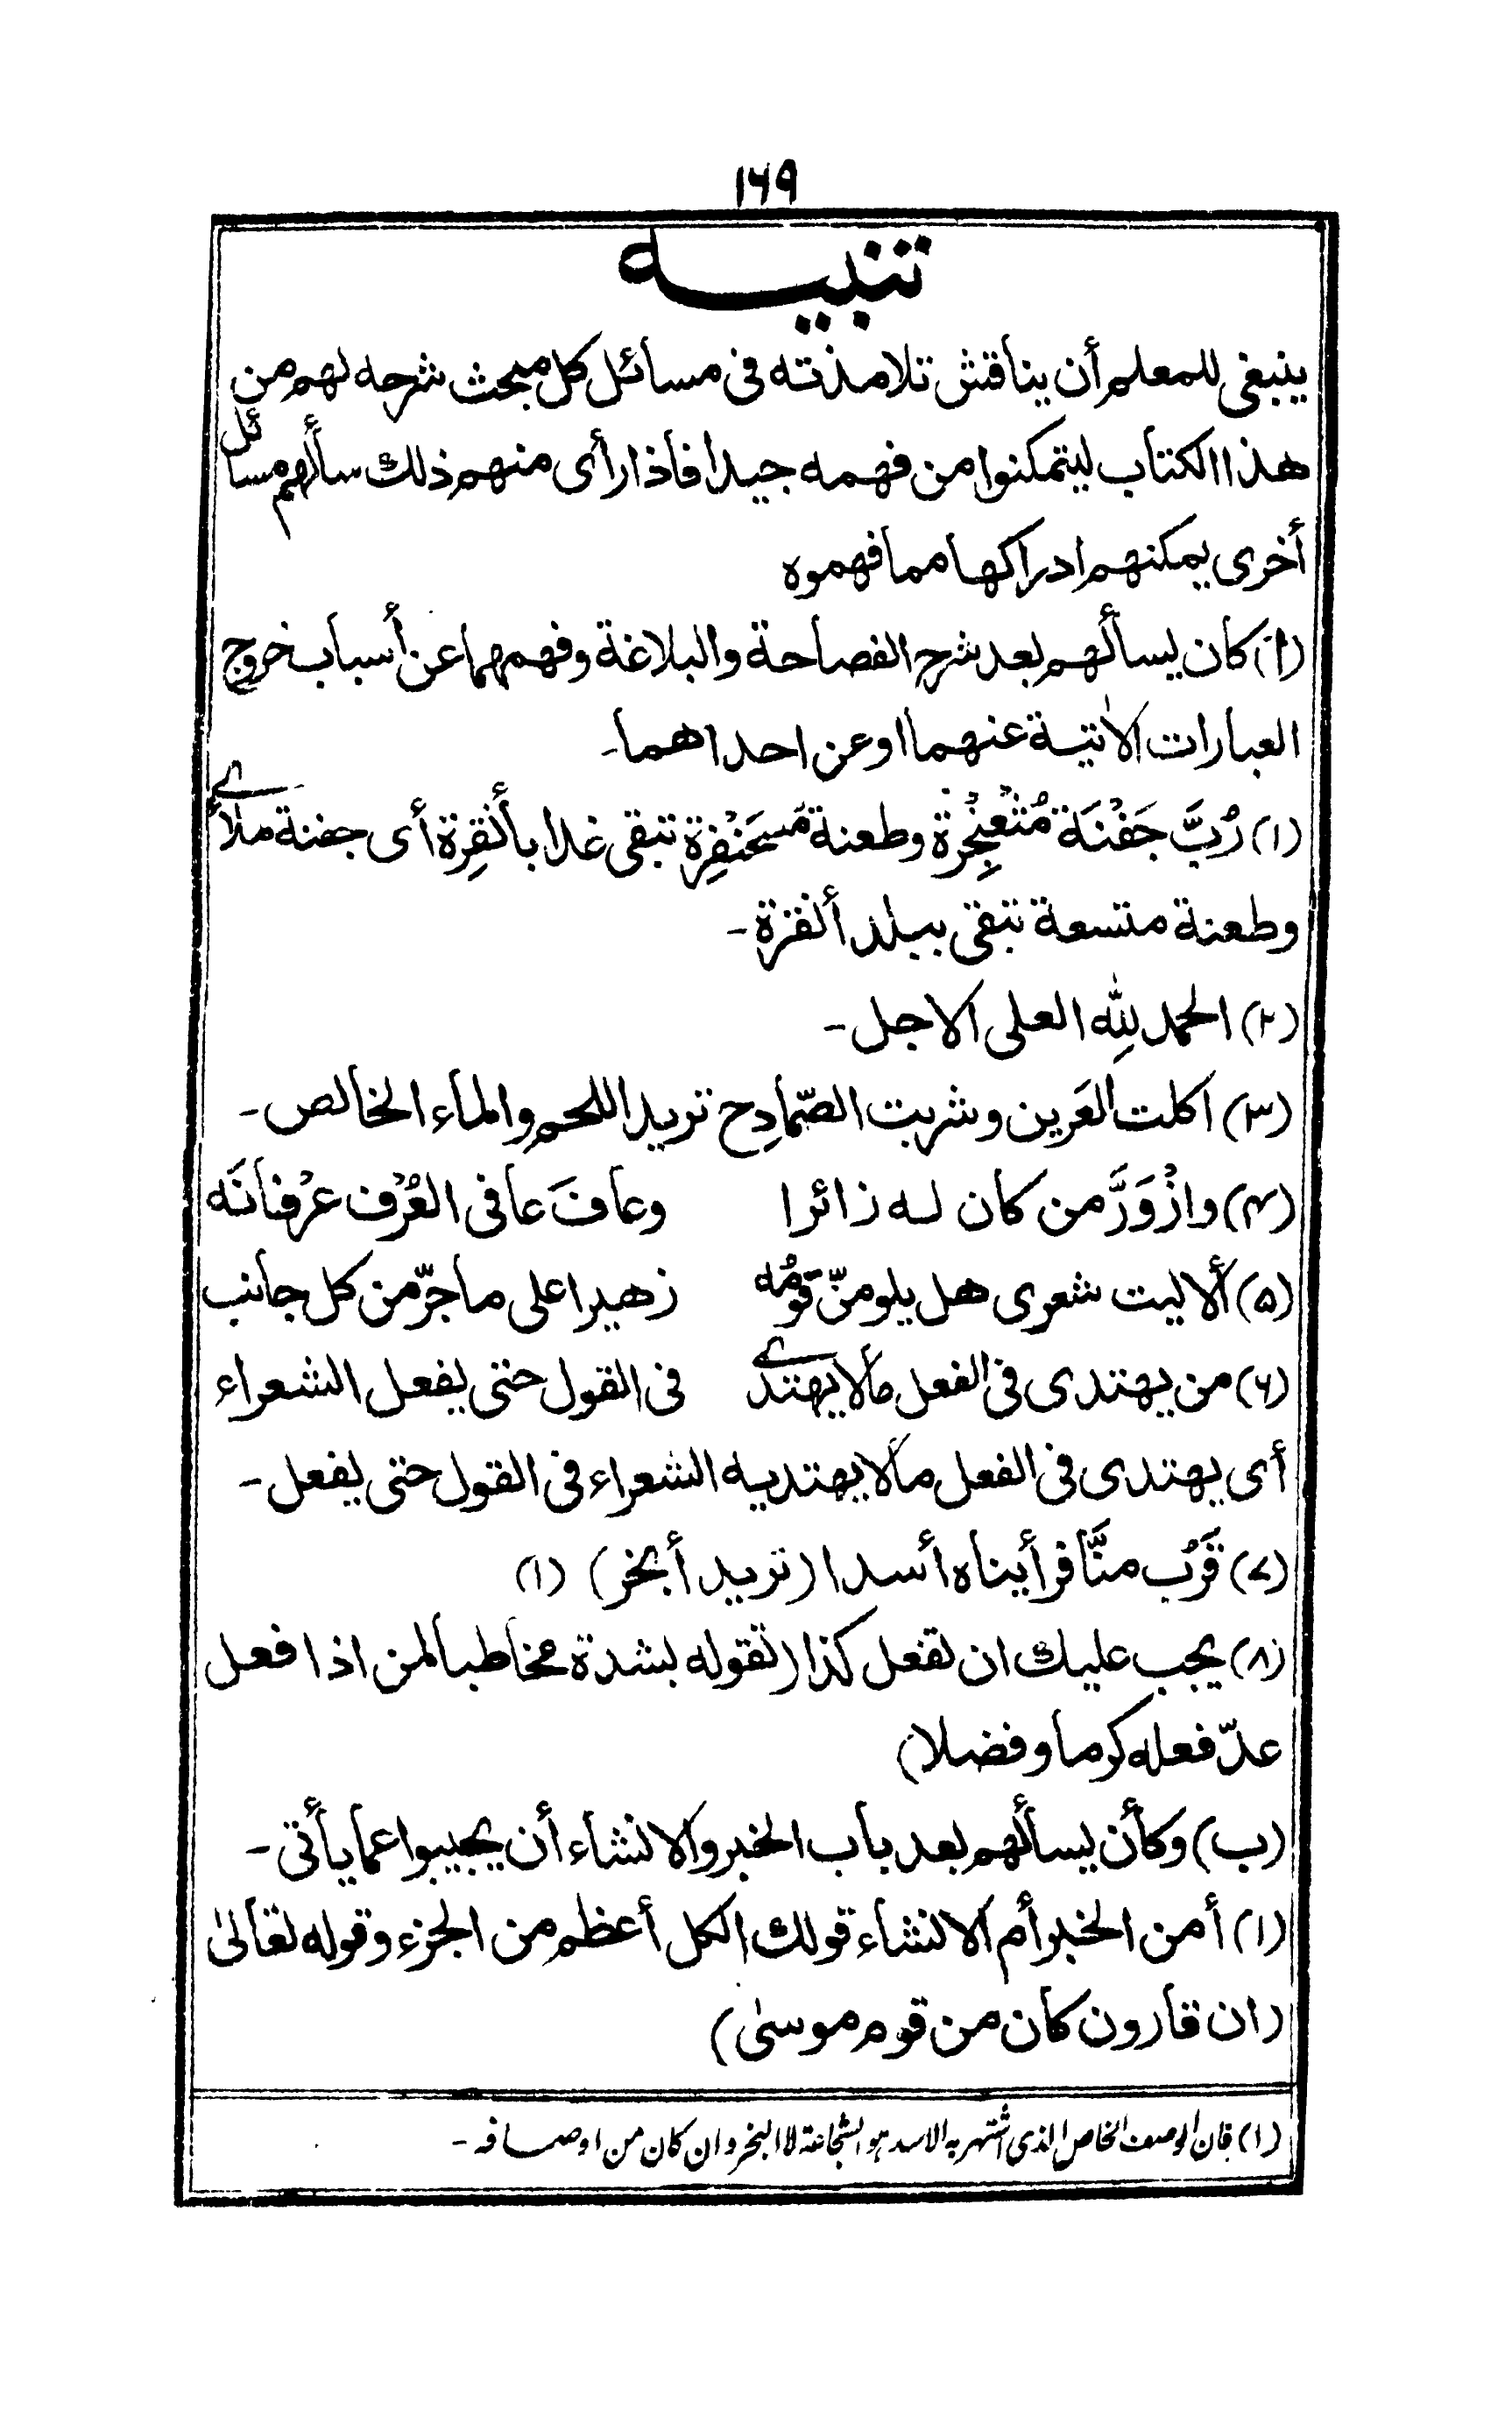 ۱۶۹
تنبیه
ینبغی للمعلم أن یناقش تلامذته فی مسائل کل مبحث شرحه لهم من
هذا الکتاب لیتمکنوا من فهمه جیدا فاذا رأی منهم ذلك سألهم مسائل
أخری یمکنهم ادراکها مما فهموه
(ا) کان یسألهم بعد شرح الفصاحة والبلاغة وفهمهما عن أسباب خروج
العبارات الاٰتیة عنهما او عن احداهما۔
(۱) رُبَّ جَفْنَة مُثْعَنْجِرة وطعنة مُسحَنْفِرة تبقی غدا بأنْقِرة أی جفنة ملأی
وطعنة متسعة تبقی ببلد أنقرة۔
(۲) الحمد لِلّٰه العلی الاجلل۔
(۳) اکلت العَرین وشربت الصّمادِح ترید اللحم والماء الخالص۔
(۴) وازْوَرَّ من کان له زائرا وعافَ عافی العُرْف عرْفانَه
(۵) ألا لیت شعری هل یلومنّ قومُه زهیرا علی ما جرّ من کل جانب
(۶) من یهتدی فی الفعل مالا یهتدی فی القول حتی یفعل الشعراء
أی یهتدی فی الفعل مالا یهتدیه الشعراء فی القول حتی یفعل۔
(۷) قَرُب منَّا فرأیناه أسدا (ترید أبخر) (۱)
(۸) یجب علیك ان تفعل کذا (تقوله بشدة مخاطبا لمن اذا فعل
عدّ فعله کرما وفضلا)
(ب) وکأن یسألهم بعد باب الخبر والانشاء أن یجیبوا عما یأتی۔
(۱) أمن الخبر أم الانشاء قولك الکل أعظم من الجزء وقوله تعالیٰ
(ان قارون کان من قوم موسیٰ)
(۱) فان الوصف الخاص الذی اشتهر به الاسد هو الشجاعة لا البخر وان کان من اوصافه۔